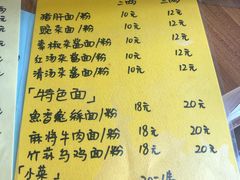 二两 三两
猪肝面/粉 10元 12元
豌杂面/粉 10元 12元
杂酱面/粉 10元 12元
红汤杂酱面/粉 10元 12元
清汤杂酱面/粉 10元 12元
「特色面」
鱼香肉丝面/粉 18元 20元
麻将牛肉面/粉 18元 20元
竹荪乌鸡面/粉 18元 20元
「小菜」